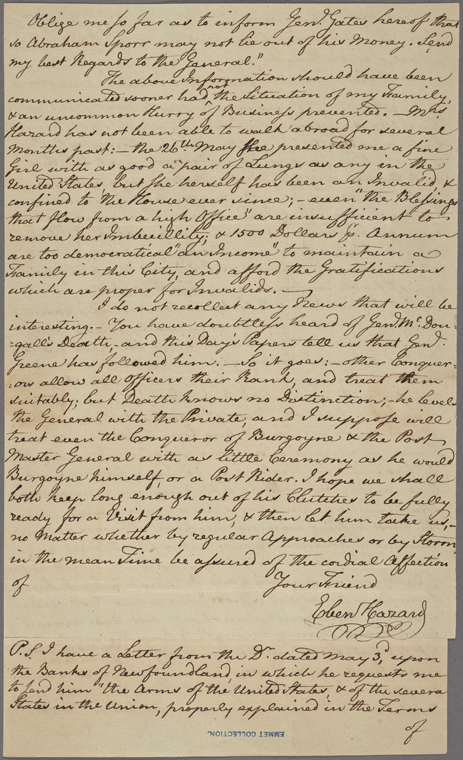 Oblige me so far as to inform Genl. Gates hereof that
so Abraham Sporr may not lie out of his Money. Send
my best Regards to the General."
The above Information should have been
communicated sooner had not the Situation of my Family,
& an uncommon Hurry of Business prevented. — Mrs
Hazard has not been able to walk abroad for several
Months past: — the 26th May she presented me a fine
Girl with as good a "pair of Lungs as any in the
United States, but she herself has been an Invalid &
confined to the House ever since; — even the Blessings
that flow from a high Office" are insufficient to
remove her Imbecillity; & 1500 Dollars pr. Annum
are too democratical "an Income" to maintain a
Family in this City, and afford the Gratifications
which are proper for Invalids. —
I do not recollect any News that will be
interesting. — You have doubtless heard of Genl. Mc.Dou-
:gall's Death, — and this Day's Papers tell us that Genl.
Greene has followed him. — So it goes: — other Conquer-
:ors allow all Officers their Rank, and treat them
suitably; but Death knows no Distinction; — he levels
the General with the Private, and I suppose will
treat even the Conqueror of Burgoyne & the Post
Master General with as little Ceremony as he would
Burgoyne himself, or a Post Rider. I hope we shall
both keep long enough out of his Clutches to be fully
ready for a Visit from him, & then let him take us, —
no Matter whether by regular Approaches or by Storm
in the mean Time be assured of the cordial Affection
of Your Friend
Eben Hazard
P.S. I have a Letter from the Dr. dated May 3d, upon
the Banks of Newfoundland, in which he requests me
to send him "the Arms of the United States, & of the several
States in the Union, properly explained in the Terms
of
EMMET COLLECTION.